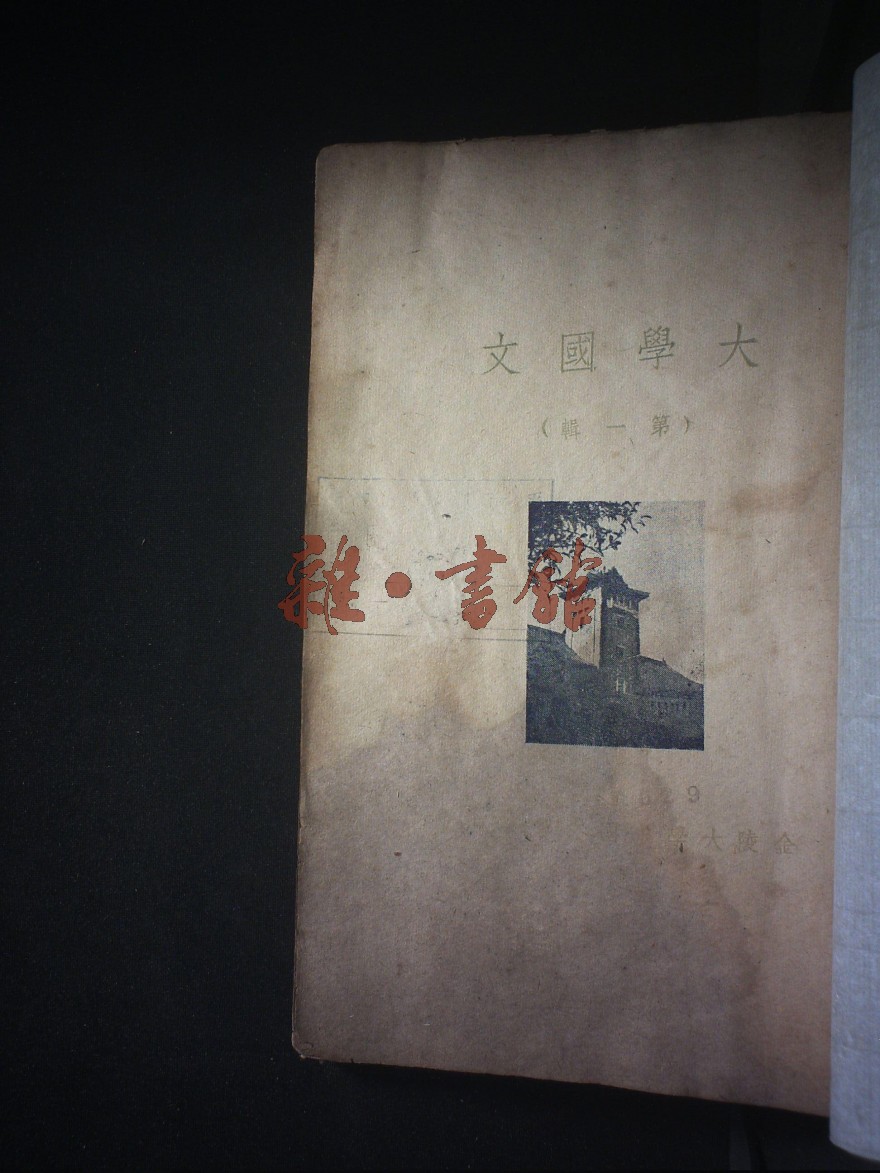 大學國文
（第一輯）
雜·書館
9
金陵大